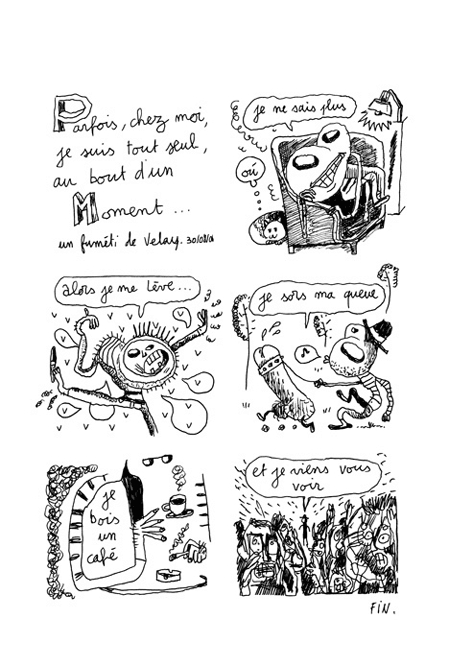 Parfois, chez moi,
je suis tout seul,
au bout d'un
Moment ...
un fuméti de Velay. 30/01/01
je ne sais plus
où
alors je me lève ...
v v v v v v v v v
je sors ma queue
je
bois
un
café
et je viens vous
voir
FIN.